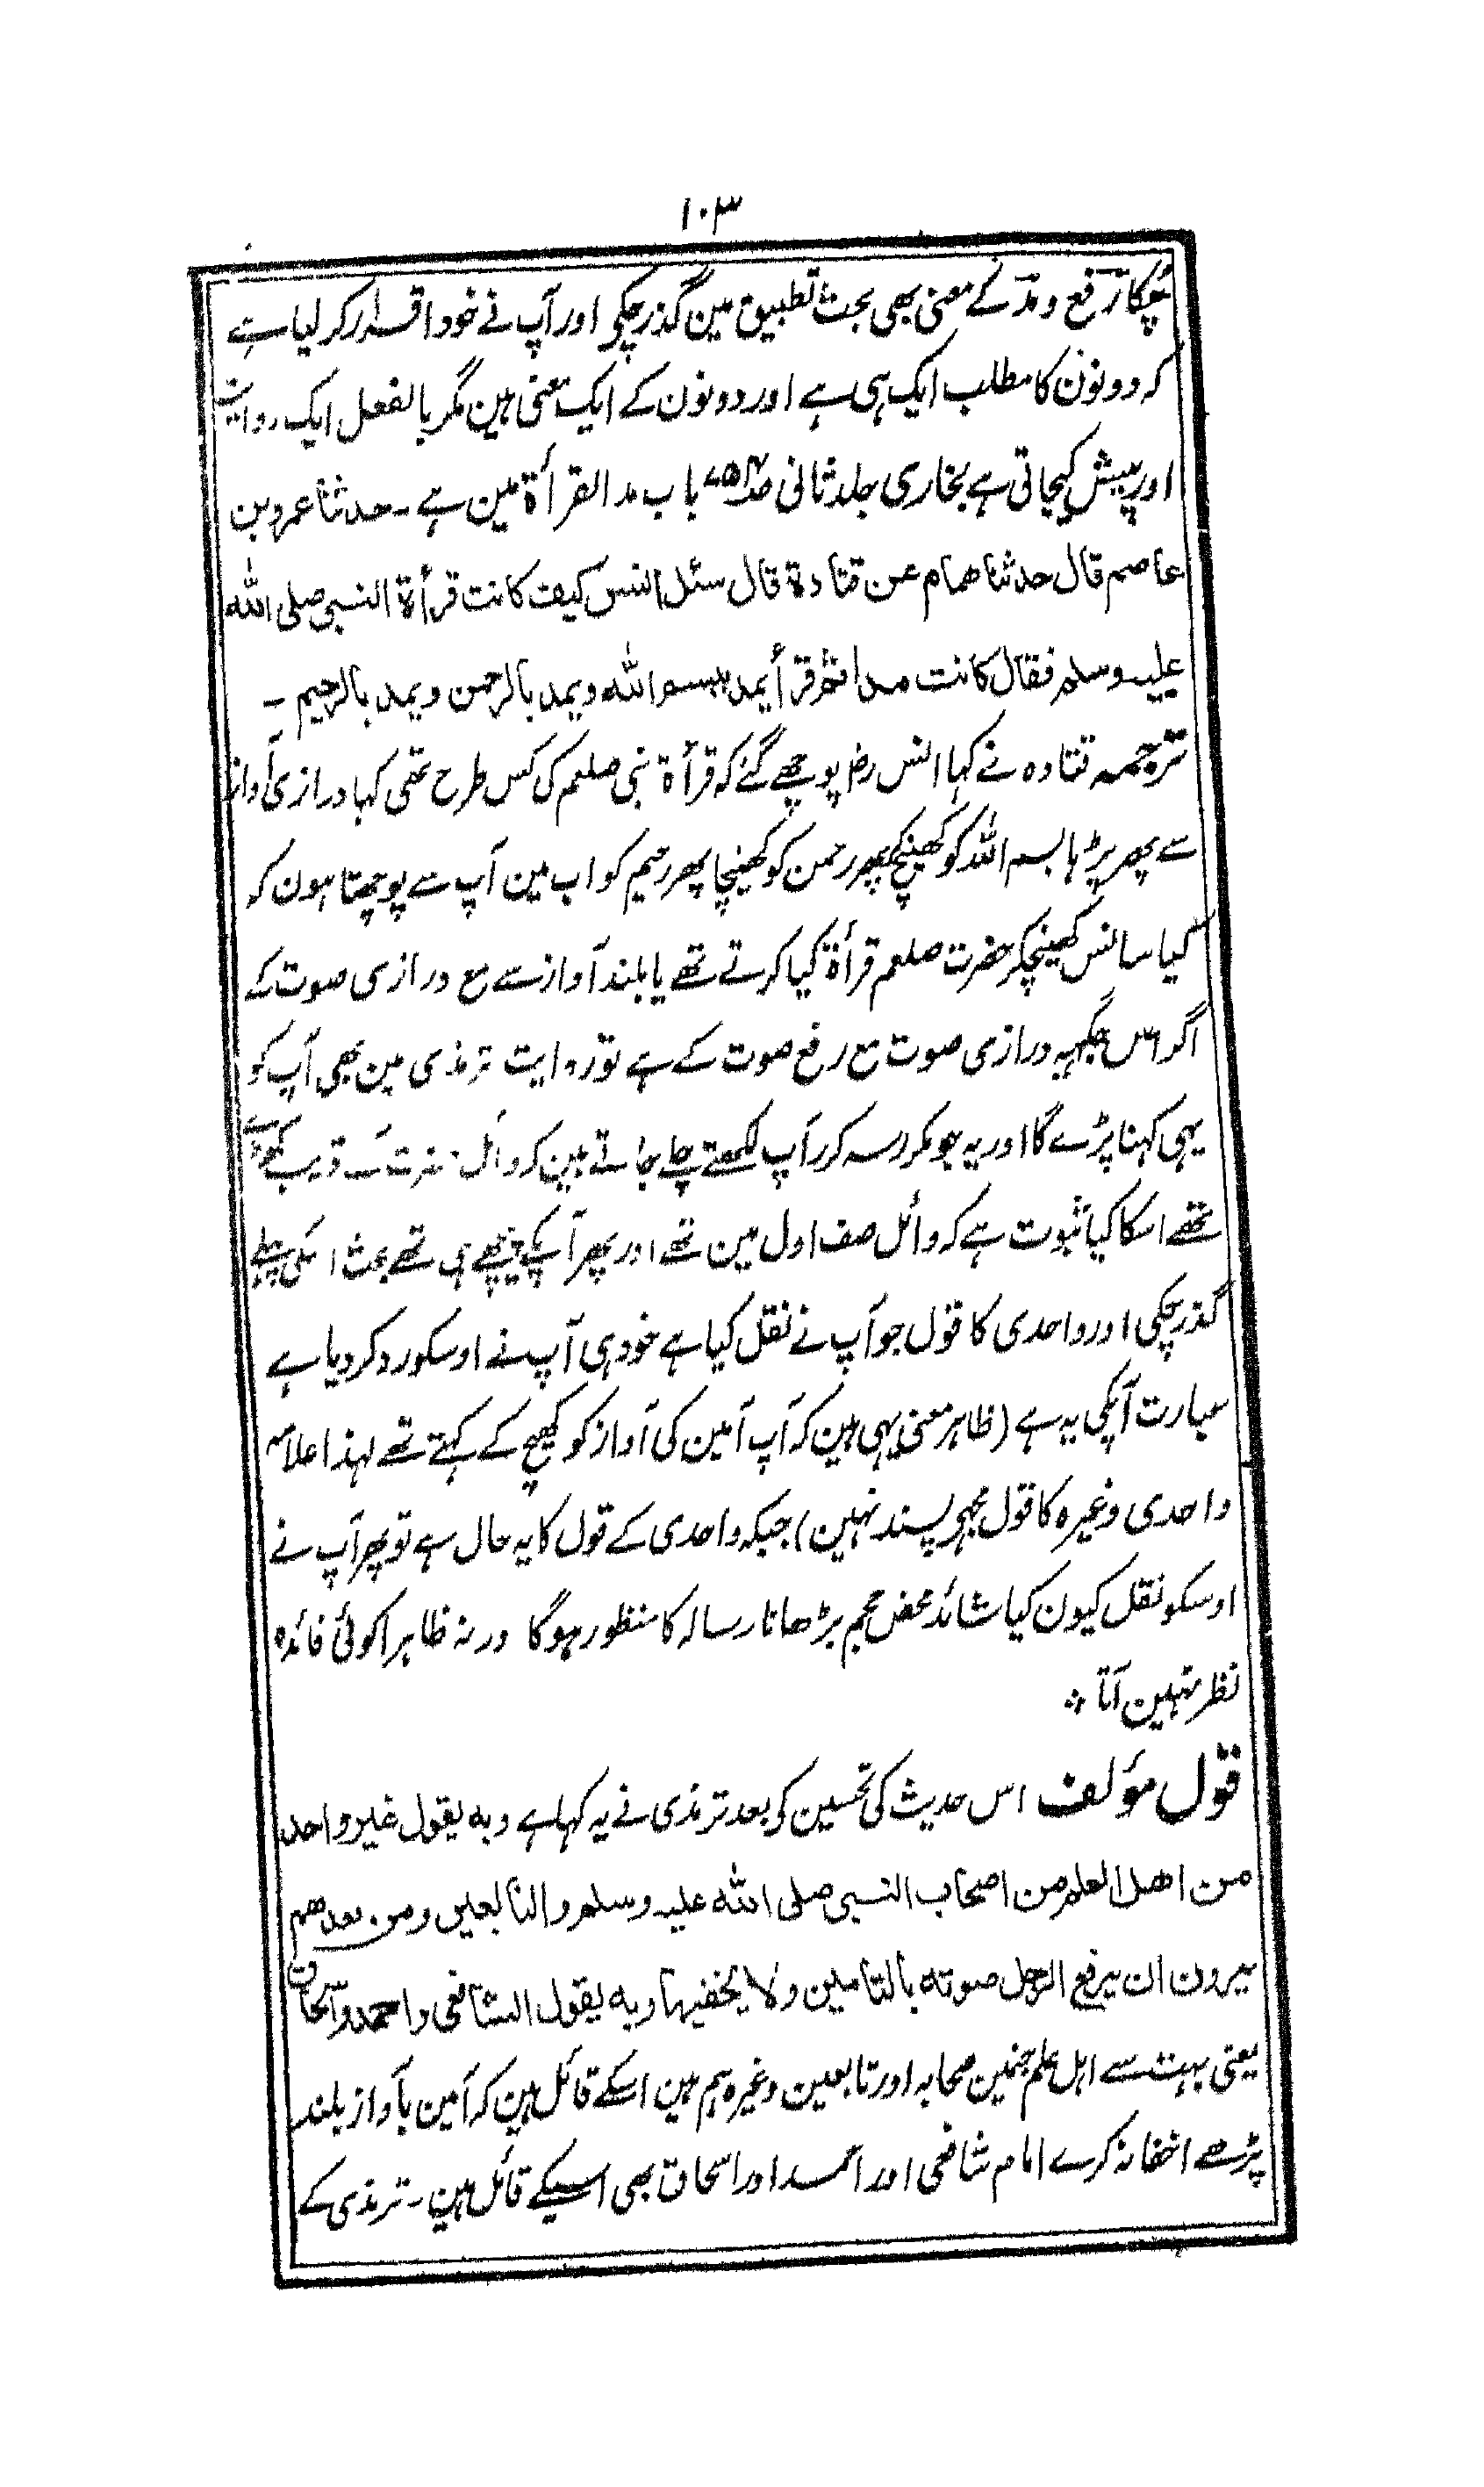 ۱۰۳
چکا رفع و مد کے معنی بھی بحث تطبیق مین گذر چکی اور آپ نے خود اقرار کر لیا ہے
کہ دونون کا مطلب ایک ہی ہے اور دونون کے ایک معنی ہین مگر بالفعل ایک روایت
اور پیش کیجاتی ہے بخاری جلد ثانی باب مد القرأة مین ہے ۔ حدثنا عمرو بن
عاصم قال حدثنا همام عن قتادة قال سئل انس کیف کانت قرأة النبی صلی الله
علیہ وسلم فقال کانت مدا ثم قرأ یمد ببسم الله ویمد بالرحمن ویمد بالرحیم ۔
ترجمہ قتادہ نے کہا انس رض پوچھے گئے کہ قرأة نبی صلعم کی کس طرح تھی کہا درازی آواز
سے پھر پڑہا بسم اللہ کو کھینچکر پھر رحمن کو کھینچا پھر رحیم کو اب مین آپ سے پوچھتا ہون کہ
کیا سانس کھینچکر حضرت صلعم قرأة کیا کرتے تھے یا بلند آواز سے مع درازی صوت کے
اگر اس جگہہ درازی صوت مع رفع صوت کے ہے تو روایت ترمذی مین بھی آپ کو
یہی کہنا پڑے گا اور یہ جو مکرر سہ کرر آپ لکھتے چلے جاتے ہین کہ وائل حضرت کے قریب کھڑے
تھے اسکا کیا ثبوت ہے کہ وائل صف اول مین تھے اور پھر آپکے پیچھے ہی تھے بحث اسکی پہلے
گذر چکی اور واحدی کا قول جو آپ نے نقل کیا ہے خود ہی آپ نے اوسکو رد کر دیا ہے
عبارت آپکی یہ ہے (ظاہر معنی یہی ہین کہ آپ آمین کی آواز کو کھیچ کے کہتے تھے لہذا علامہ
واحدی وغیرہ کا قول مجہے پسند نہین) جبکہ واحدی کے قول کا یہ حال ہے تو پھر آپ نے
اوسکو نقل کیون کیا شائد محض حجم بڑھانا رسالہ کا منظور ہوگا ورنہ ظاہرا کوئی فائدہ
نظر نہین آتا ؞
قول مؤلف اس حدیث کی تحسین کو بعد ترمذی نے یہ کہا ہے وبه یقول غیر واحد
من اهل العلم من اصحاب النبی صلی الله علیہ وسلم والتابعین ومن بعدهم
یرون ان یرفع الرجل صوته بالتامین ولا یخفیها وبه یقول الشافعی واحمد واسحاق
یعنی بہت سے اہل علم جنمین صحابہ اور تابعین وغیرہ ہم ہین اسکے قائل ہین کہ آمین بآواز بلند
پڑھے اخفا نہ کرے امام شافعی اور احمد اور اسحاق بھی اسیکے قائل ہین ۔ ترمذی کے